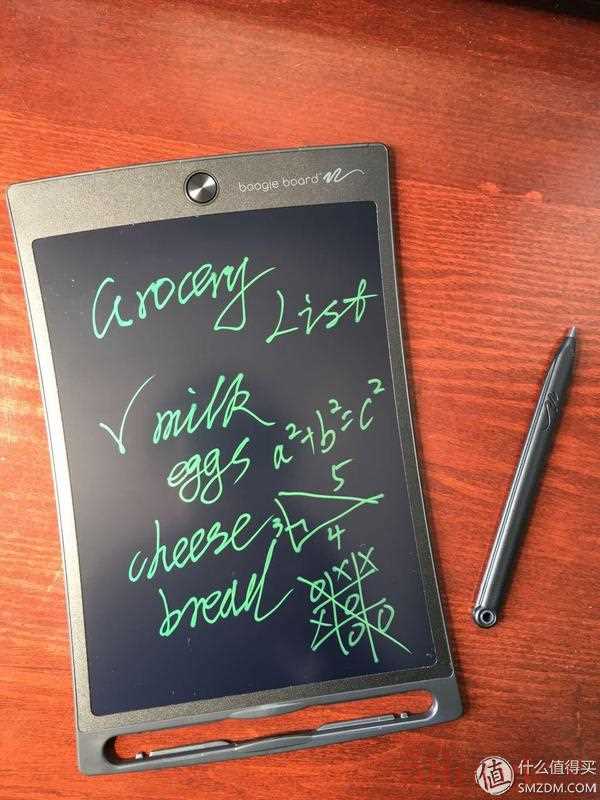 boogie board
Grocery
List
✓ milk
eggs
a²+b²=c²
5
cheese
3
4
bread
O X X
X O
O O
值 什么值得买
SMZDM.COM